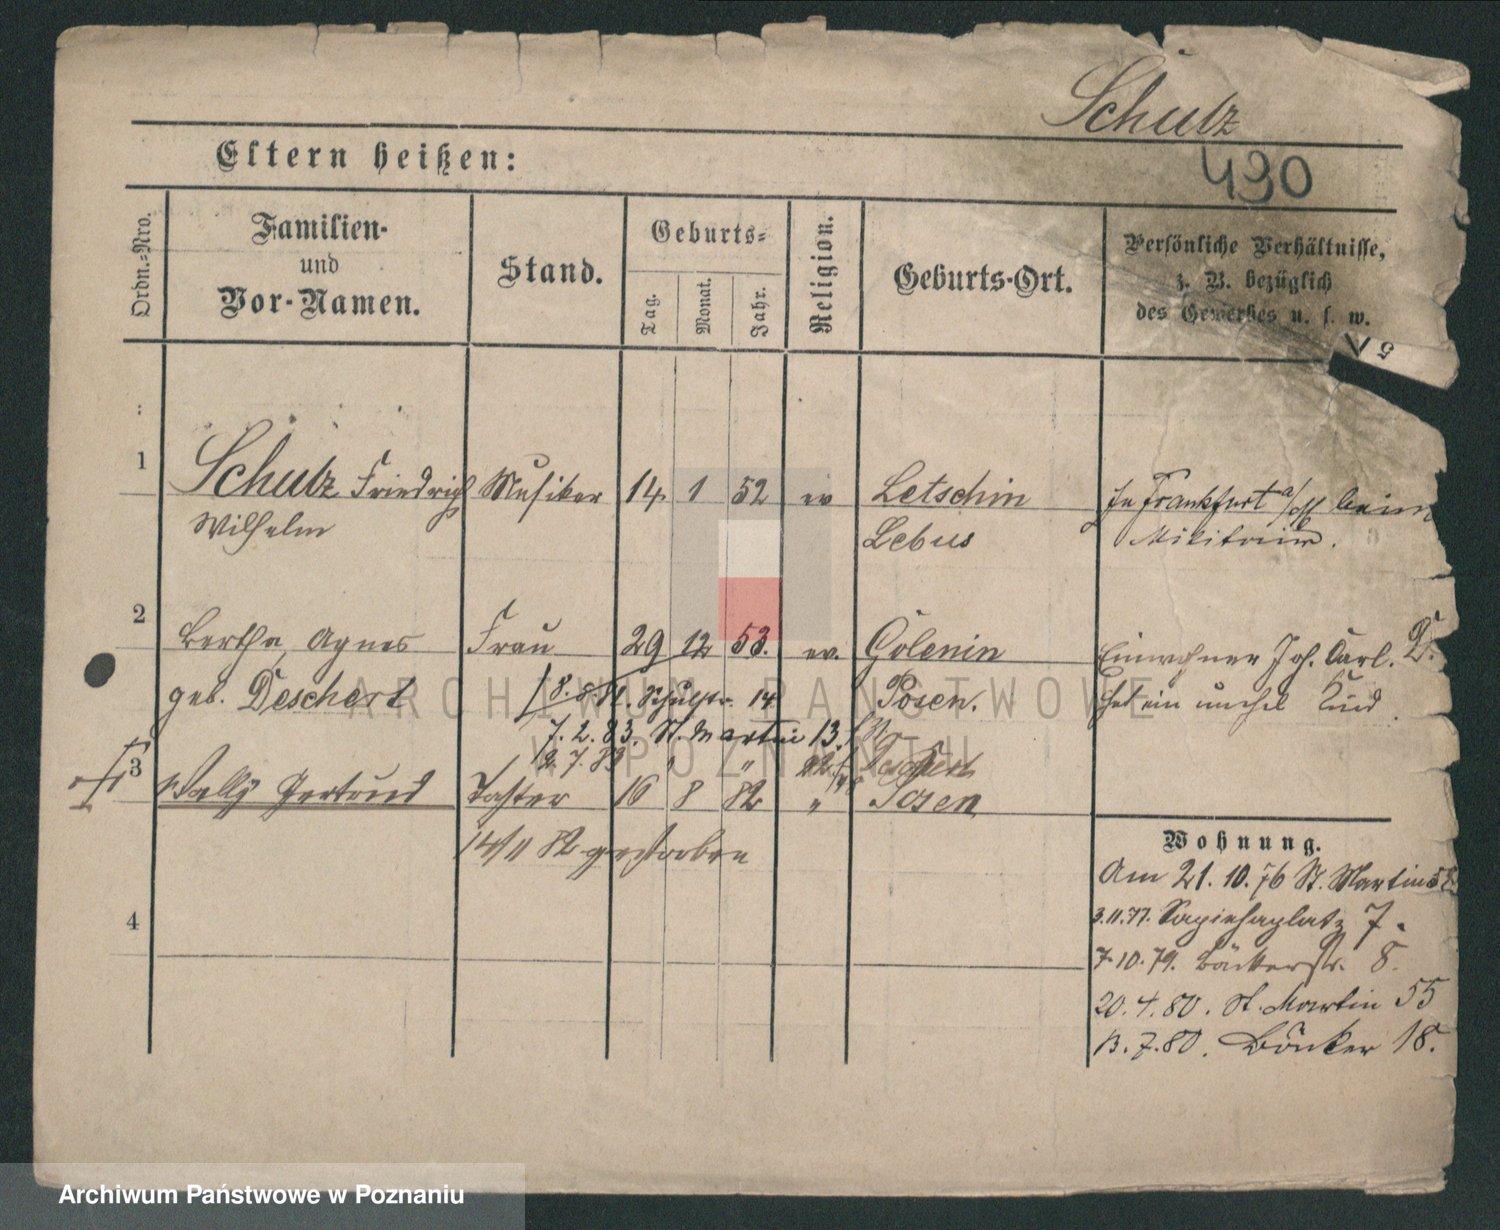 Schulz
490
Eltern heißen:
Ordn.-Nro.
Familien- und Vor-Namen.
Stand.
Geburts-
Tag.
Monat.
Jahr.
Religion.
Geburts-Ort.
Persönliche Verhältnisse,
z. B. bezüglich
des Gewerbes u. s. w.
1
Schulz Friedrich Musiker 14 1 52 ev Letschin In Frankfurt a/O beim
Wilhelm Lebus Militair.
2
Bertha, Agnes Frau 29 12 53. ev. Golenin Einwohner Joh. Carl. D.
geb. Deschert 18.8.81. Schulstr. 14 Posen. hat ein unehel Kind
7.2.83. St. Martin 13.
2.7.83 " " 22
3
Wally Gertrud Tochter 16 8 82 " Posen
14/11 82 gestorben
4
Wohnung.
Am 21.10.76 St. Martin 58
3.11.77. Sapiehaplatz 7.
7.10.79. Bäckerstr. 8.
20.4.80. St. Martin 55
13.7.80. Bäcker 18.
ARCHIWUM PAŃSTWOWE
W POZNANIU
Archiwum Państwowe w Poznaniu